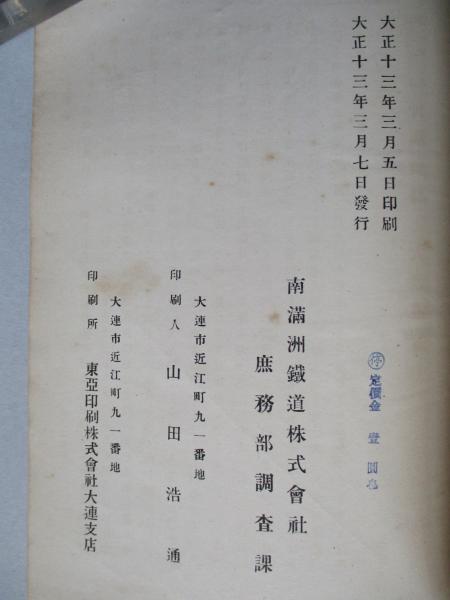 大正十三年三月五日印刷
大正十三年三月七日發行
定價金壹圓
南滿洲鐵道株式會社
庶務部調査課
大連市近江町九一番地
印刷人 山田浩通
大連市近江町九一番地
印刷所 東亞印刷株式會社大連支店